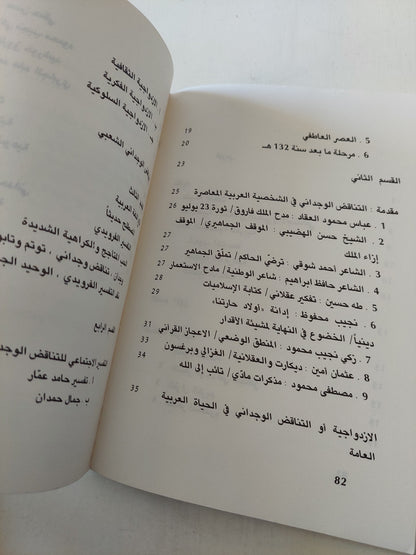 5 . العصر العاطفي 19
6 . مرحلة ما بعد سنة 132 هـ 20
القسم الثاني 23
مقدمة : التناقض الوجداني في الشخصية العربية المعاصرة 25
1 . عباس محمود العقاد : مدح الملك فاروق / ثورة 23 يوليو 26
2 . الشيخ حسن الهضيبي : الموقف الجماهيري / الموقف
إزاء الملك
3 . الشاعر أحمد شوقي : ترضّي الحاكم / تملّق الجماهير
4 . الشاعر حافظ ابراهيم : شاعر الوطنية / مادح الاستعمار 27
5 . طه حسين : تفكير عقلاني / كتابة الإسلاميات 28
6 . نجيب محفوظ : إدانة «أولاد حارتنا» 29
دينياً / الخضوع في النهاية لمشيئة الأقدار
7 . زكي نجيب محمود : المنطق الوضعي / الاعجاز القرآني 31
8 . عثمان أمين : ديكارت والعقلانية / الغزالي وبرغسون 33
9 . مصطفى محمود : مذكرات ماديّ / تائب إلى الله 34
الازدواجية أو التناقض الوجداني في الحياة العربية 35
العامة
82
الازدواجية الثقافية
الازدواجية الفكرية
الازدواجية السلوكية
الوجداني الشعبي
الثالث
العربية
حديثاً
الفرويدي
المتأجج والكراهية الشديدة
تناقض وجداني ، توتم وتابو
التفسير الفرويدي ، الوحيد
القسم الرابع
التفسير الإجتماعي للتناقض الوجداني
أ . تفسير حامد عمّار
ب . جمال حمدان